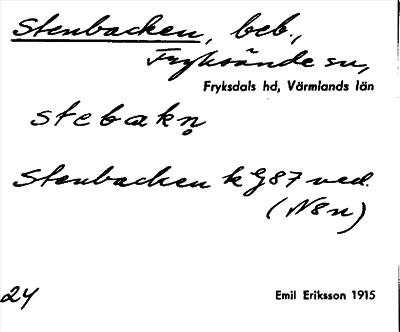 Stenbacken, beb.,
Fryksände sn,
Fryksdals hd, Värmlands län
stebakn̥
Stenbacken k G87 ved.
(N8n)
24
Emil Eriksson 1915